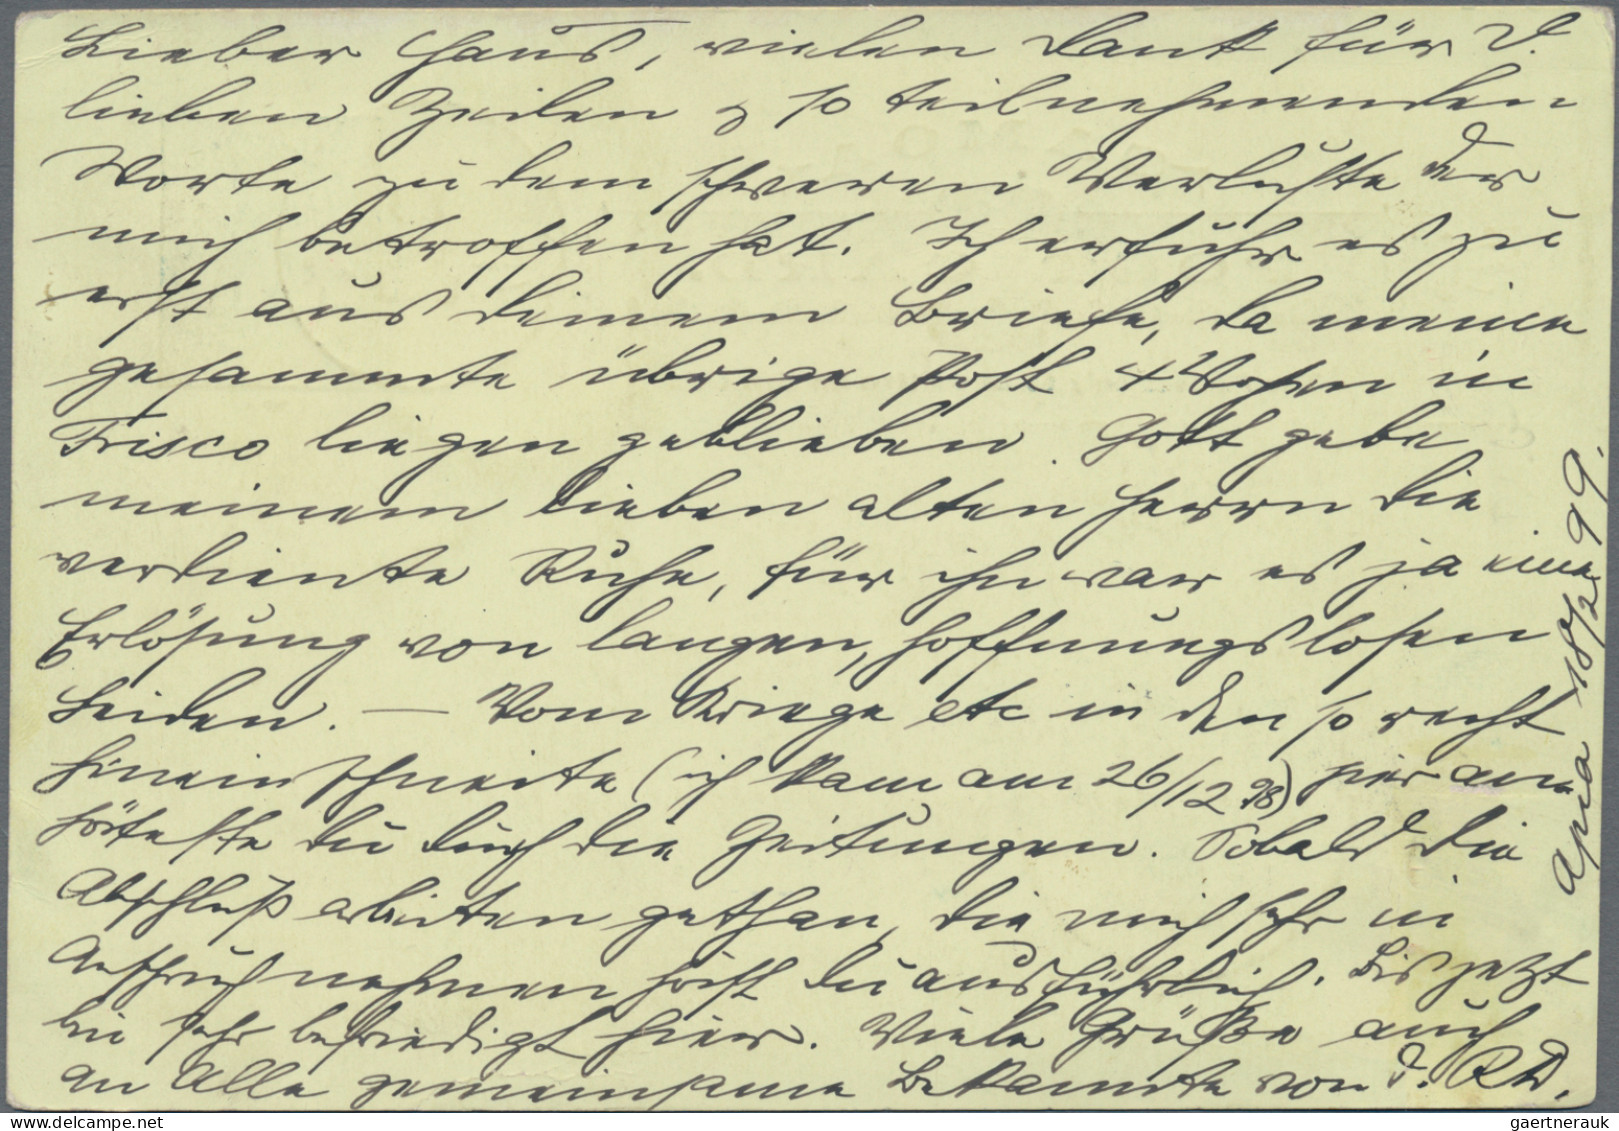 Lieber Hans, vielen Dank für D.
lieben Zeilen & so teilnehmenden
Worte zu dem schweren Verluste der
mich betroffen hat. Ich erfuhr es zu
erst aus deinem Briefe, da meine
gesammte übrige Post 4 Wochen in
Frisco liegen geblieben. Gott gebe
meinem lieben alten Herrn die
verdiente Ruhe, für ihn war es ja eine
Erlösung von langen, hoffnungslosen
Leiden. — Vom Kriege etc in den so recht
hineinschneite (ich kam am 26/12 98) hier an
hörtest du durch die Zeitungen. Sobald die
Abschlußarbeiten gethan, die mich sehr in
Anspruch nehmen hörst du ausführlich. Bis jetzt
bin sehr befriedigt hier. Viele Grüße auch
an Alle gemeinsame Bekannte von D. RD.
Apia 18/2 99.
gaertnerauk